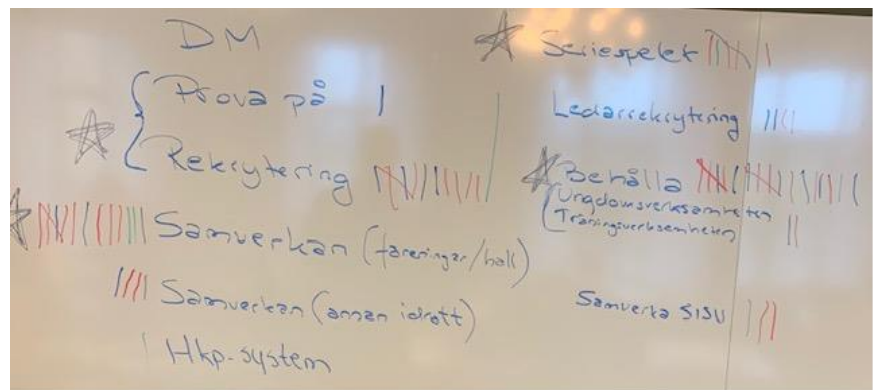 DM
Prova på
Rekrytering
Samverkan (föreningar/hall)
Samverkan (annan idrott)
Hkp-system
Seriespelet
Ledarrekrytering
Behålla
Ungdomsverksamheten
Träningsverksamheten
Samverka SISU